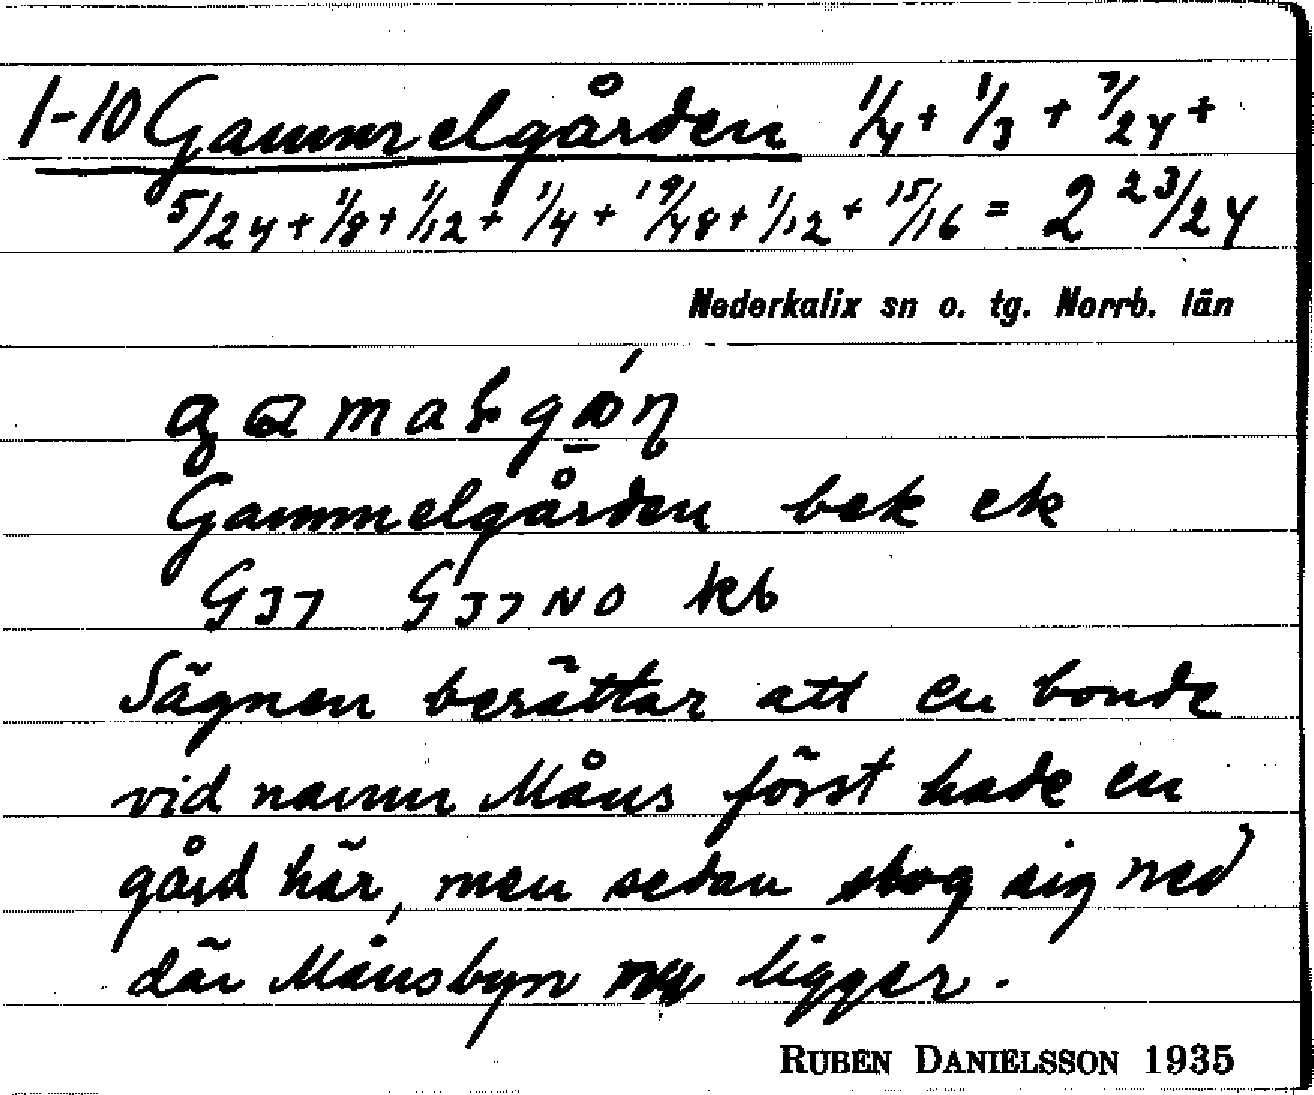 1-10 Gammelgården 1/4 + 1/3 + 7/24 +
5/24 + 1/8 + 1/12 + 1/4 + 19/48 + 1/12 + 15/16 = 2 23/24
Nederkalix sn o. tg. Norrb. län
Gammelgården bek ek
G37 G37NO kb
Sägnen berättar att en bonde
vid namn Måns först hade en
gård här, men sedan slog sig ned
där Månsbyn nu ligger.
RUBEN DANIELSSON 1935